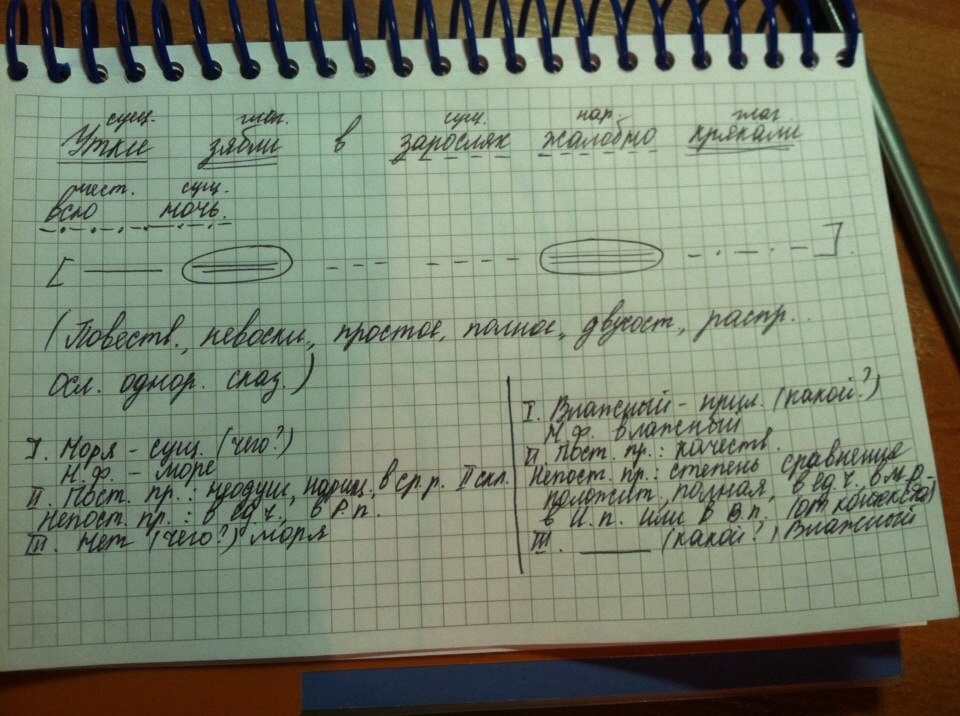 сущ. глаг. сущ. нар. глаг.
Утки зябли в зарослях жалобно крякали
мест. сущ.
всю ночь.
[ ].
(Повеств., невоскл., простое, полное, двусост., распр..
осл. однор. сказ.)
I. Моря - сущ. (чего?)
Н.Ф. - море
II. Пост. пр.: неодуш., нариц., в ср.р. II скл.
Непост. пр.: в ед.ч., в Р.п.
III. Нет (чего?) моря
I. Влажный - прил. (какой?)
Н.Ф. влажный
II Пост. пр.: качеств.
Непост. пр.: степень сравнения
положит., полная, в ед.ч. в м.р.
в И.п. или в В.п. (от контекста)
III. ______ (какой?) Влажный